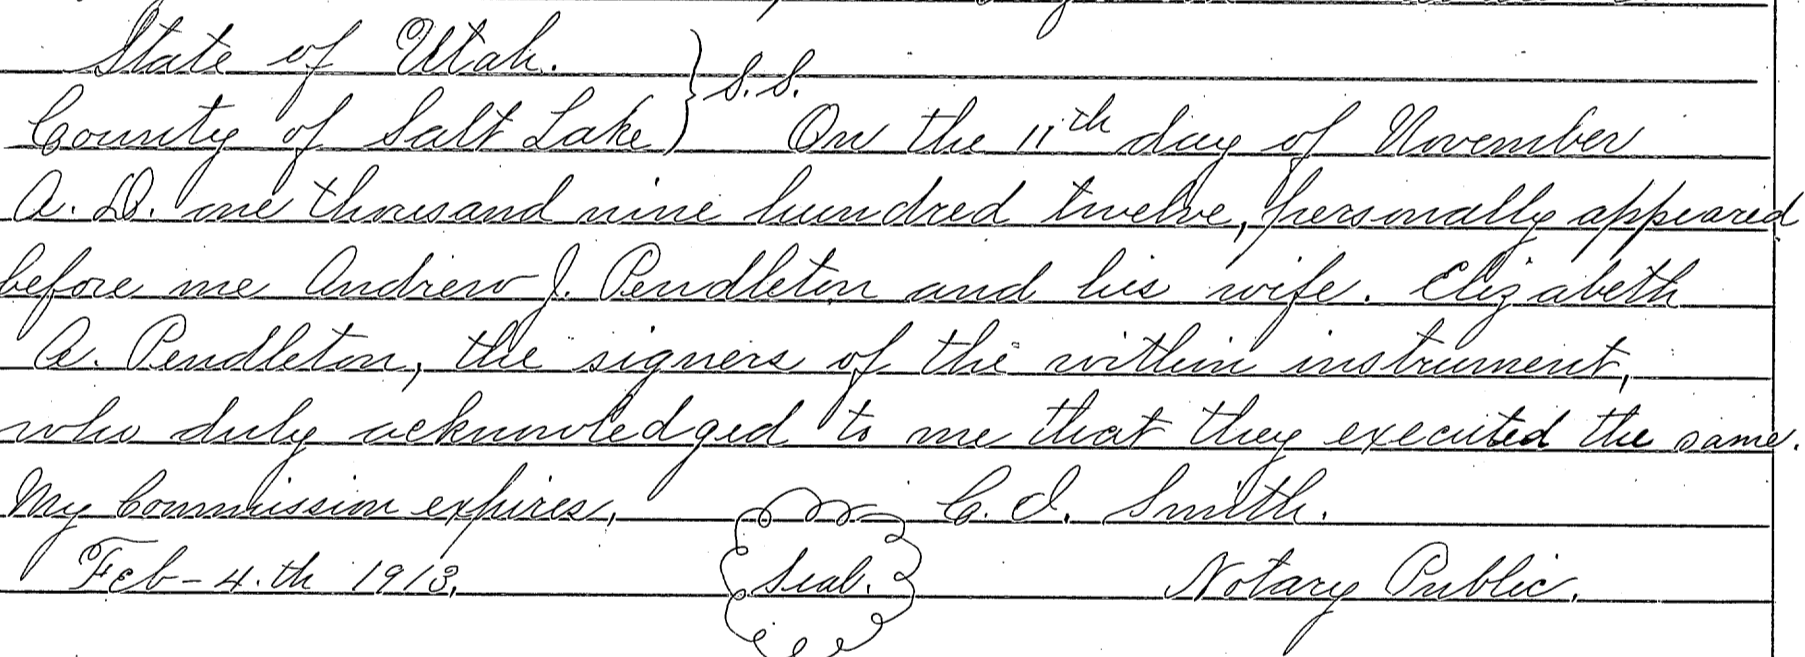 State of Utah.
} S.S.
County of Salt Lake) On the 11th day of November
A.D. one thousand nine hundred twelve, personally appeared
before me Andrew J. Pendleton and his wife. Elizabeth
A. Pendleton, the signers of the within instrument,
who duly acknowledged to me that they executed the same.
My Commission expires, C. I. Smith.
Feb - 4.th 1913. Seal. Notary Public.